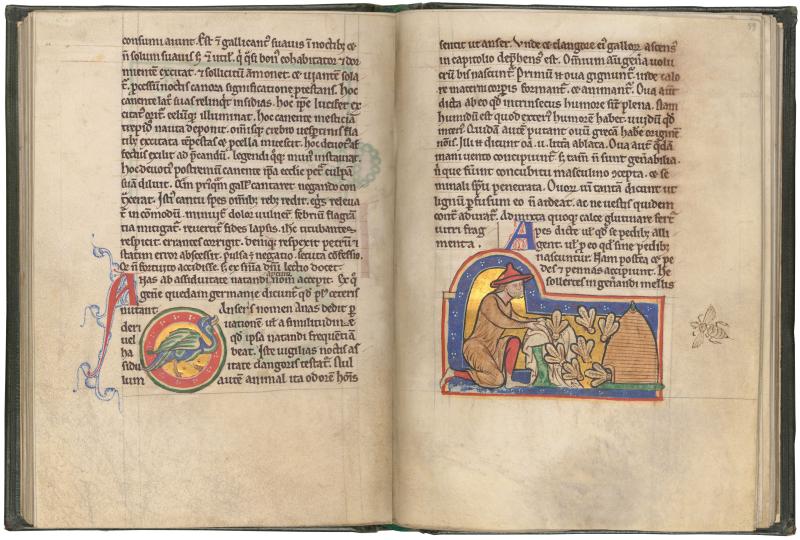 consumi aiunt. Est ⁊ gallicant᷒ suauis ī noctib᷒ ce
ñ solum suauis s; ⁊ util. bon᷒ cohabitator ⁊ dor
mientē excitat. ⁊ sollicitū āmonet. ⁊ uiantē sola
noctis canora significatione
canente suas relinq̄t insidias. Hoc lucifer ex
illuminat. Hoc canente mesticiā
trepid᷒ nauta deponit. crebro uespertinis fla
trib; excitata tēpestas ⁊ pcella mitescit. hoc deuot᷒
exilit ad p̄candū. legendi munus instaurat.
hoc postremū canente ip̄a eccłie culpā
suā diluit. gall᷒ cantaret negando con
Isti᷒ cantu spes oīnib; redit. egris releua
t᷑ in cōmodū. minuit᷑ dolor uulneꝝ. febriū flagrā
tia mitigat᷑. reuertit᷑ fides lapsis. ihc titubantes
respicit. errantes corrigit. Deniq; respexit petrū ⁊
statim error abscessit. pulsa ē negatio. secuta cōfessio.
ñ fortuito accidisse. s; ex dn̄i lectio docet.
Anas ab assiduitate natandi aptum nom̄ accepit. Ex q̊
geñe quedam germanie dicunt᷑ qd̄ pl᷒ ceteris
nutriant.
Anseris nomen anas dedit p̄ di
uationē ut a similitudine
deri
uel
qd̄ ipsa natandi frequentiā
ha
habeat. Iste uigilias noctis as
sidui
itate clangoris testat᷑. Nul
lum
autē animal ita odorē hōis
sentit ut anser. Vnde ⁊ clangore ei᷒ galloꝝ ascens᷒
in capitolio dep̄hens᷒ est. Omnium geñā uolu
crū bis nascunt᷑. Primū n̄ oua gignunt᷑. inde calo
re materni corporis formant᷑. ⁊ animant᷑. Oua aut̄
dicta ab eo qd̄ intrinsecus humore sint plena. Nam
humidū est quod exteri᷒ humorē habet. uuidū qd̄
interi᷒. Quidā autē putant ouū grecā habe originē
nōis. Illi n̄ dicunt oa. u. littā ablata. Oua aut̄ q̄dā
inani uento concipiunt᷑ s; tam̄ n̄ sunt geñabilia
n̄ que fuīnt concubitu masculino ⁊cepta. ⁊ se
minali sp̄u penetrata. Ouoꝝ uim tantā dicunt ut
lignū pfusum eo n̄ ardeat. ac ne uestis quidem
adurat᷑. Admixta quoq; calce glutinare fert᷑
uitri frag
menta.
Apes dicte ut qd̄ se pedib; alli
gent. ut p eo qd̄ sine pedib;
nascuntur. Nam postea ⁊ pe
des ⁊ pennas accipiunt. He
sollertes in geñandi mellis